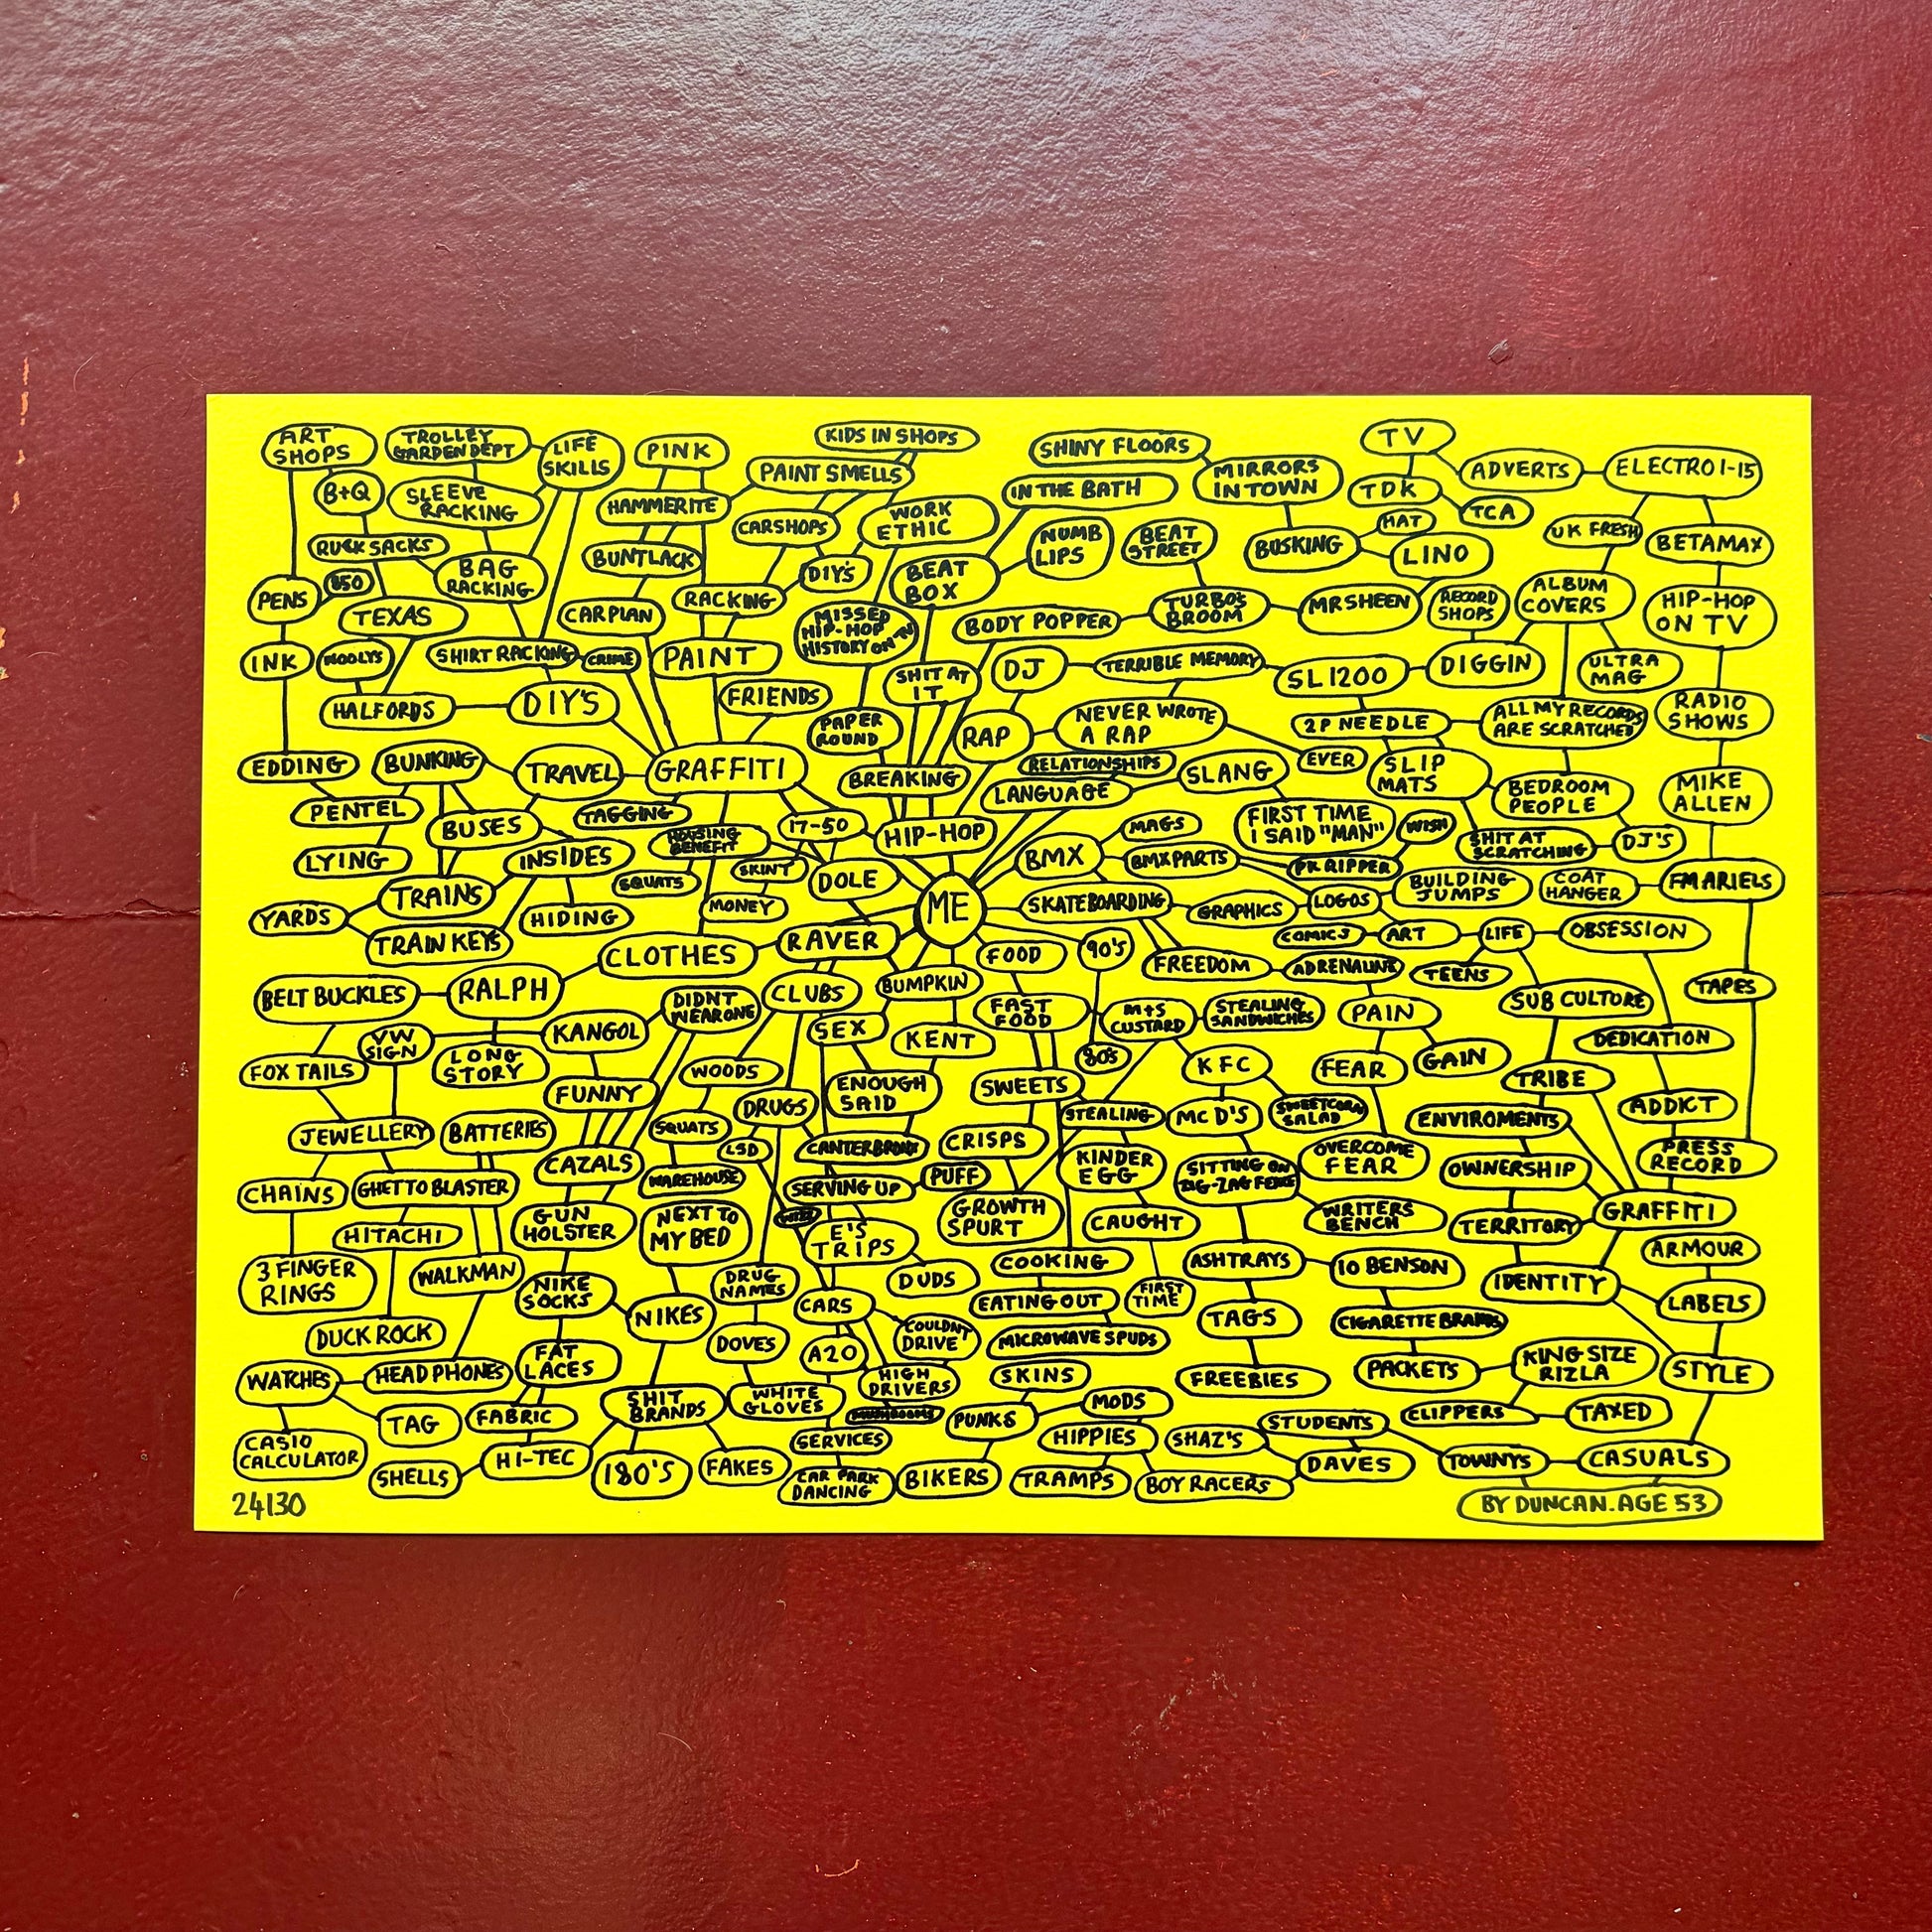 ART
SHOPS
TROLLEY
GARDEN DEPT
LIFE
SKILLS
PINK
KIDS IN SHOPS
PAINT SMELLS
SHINY FLOORS
MIRRORS
IN TOWN
TV
ADVERTS
ELECTRO 1-15
B+Q
SLEEVE
RACKING
HAMMERITE
CARSHOPS
WORK
ETHIC
IN THE BATH
TDK
TCA
HAT
UK FRESH
BETAMAX
RUCK SACKS
BAG
RACKING
BUNTLACK
DIY'S
BEAT
BOX
NUMB
LIPS
BEAT
STREET
BUSKING
LINO
PENS
850
TEXAS
CARPLAN
RACKING
MISSED
HIP-HOP
HISTORY ON TV
BODY POPPER
TURBO'S
BROOM
MR SHEEN
RECORD
SHOPS
ALBUM
COVERS
HIP-HOP
ON TV
INK
WOOLYS
SHIRT RACKING
CRIME
PAINT
SHIT AT
IT
DJ
TERRIBLE MEMORY
SL1200
DIGGIN
ULTRA
MAG
HALFORDS
DIY'S
FRIENDS
PAPER
ROUND
RAP
NEVER WROTE
A RAP
2P NEEDLE
ALL MY RECORDS
ARE SCRATCHED
RADIO
SHOWS
EDDING
BUNKING
TRAVEL
GRAFFITI
BREAKING
RELATIONSHIPS
LANGUAGE
SLANG
EVER
SLIP
MATS
BEDROOM
PEOPLE
MIKE
ALLEN
PENTEL
BUSES
TAGGING
HOUSING
BENEFIT
17-50
HIP-HOP
MAGS
FIRST TIME
I SAID "MAN"
WISH
SHIT AT
SCRATCHING
DJ'S
LYING
INSIDES
SKINT
SQUATS
DOLE
BMX
BMX PARTS
PK RIPPER
BUILDING
JUMPS
COAT
HANGER
FM ARIELS
TRAINS
YARDS
HIDING
MONEY
ME
SKATEBOARDING
GRAPHICS
LOGOS
TRAIN KEYS
CLOTHES
RAVER
FOOD
90'S
COMICS
ART
LIFE
OBSESSION
BELT BUCKLES
RALPH
DIDNT
WEAR ONE
CLUBS
BUMPKIN
FREEDOM
ADRENALINE
TEENS
TAPES
VW
SIGN
KANGOL
SEX
KENT
FAST
FOOD
M+S
CUSTARD
STEALING
SANDWICHES
PAIN
SUB CULTURE
FOX TAILS
LONG
STORY
WOODS
80'S
KFC
FEAR
GAIN
DEDICATION
FUNNY
DRUGS
ENOUGH
SAID
SWEETS
STEALING
MC D'S
SWEETCORN
SALAD
TRIBE
ADDICT
JEWELLERY
BATTERIES
SQUATS
LSD
CRISPS
KINDER
EGG
OVERCOME
FEAR
ENVIROMENTS
PRESS
RECORD
CHAINS
GHETTO BLASTER
CAZALS
WAREHOUSE
SERVING UP
PUFF
SITTING ON
ZIG-ZAG FENCE
OWNERSHIP
HITACHI
GUN
HOLSTER
NEXT TO
MY BED
E'S
TRIPS
GROWTH
SPURT
CAUGHT
WRITERS
BENCH
TERRITORY
GRAFFITI
3 FINGER
RINGS
WALKMAN
NIKE
SOCKS
DRUG
NAMES
DUDS
COOKING
FIRST
TIME
ASHTRAYS
10 BENSON
IDENTITY
ARMOUR
LABELS
DUCK ROCK
NIKES
CARS
EATING OUT
TAGS
CIGARETTE BRANDS
WATCHES
HEAD PHONES
FAT
LACES
DOVES
A20
COULDNT
DRIVE
MICROWAVE SPUDS
PACKETS
KING SIZE
RIZLA
STYLE
TAG
FABRIC
SHIT
BRANDS
WHITE
GLOVES
HIGH
DRIVERS
MUSHROOMS
SKINS
MODS
FREEBIES
CLIPPERS
TAXED
CASIO
CALCULATOR
SHELLS
HI-TEC
180'S
FAKES
SERVICES
CAR PARK
DANCING
PUNKS
BIKERS
HIPPIES
TRAMPS
SHAZ'S
BOY RACERS
STUDENTS
DAVES
TOWNYS
CASUALS
24/30
BY DUNCAN. AGE 53